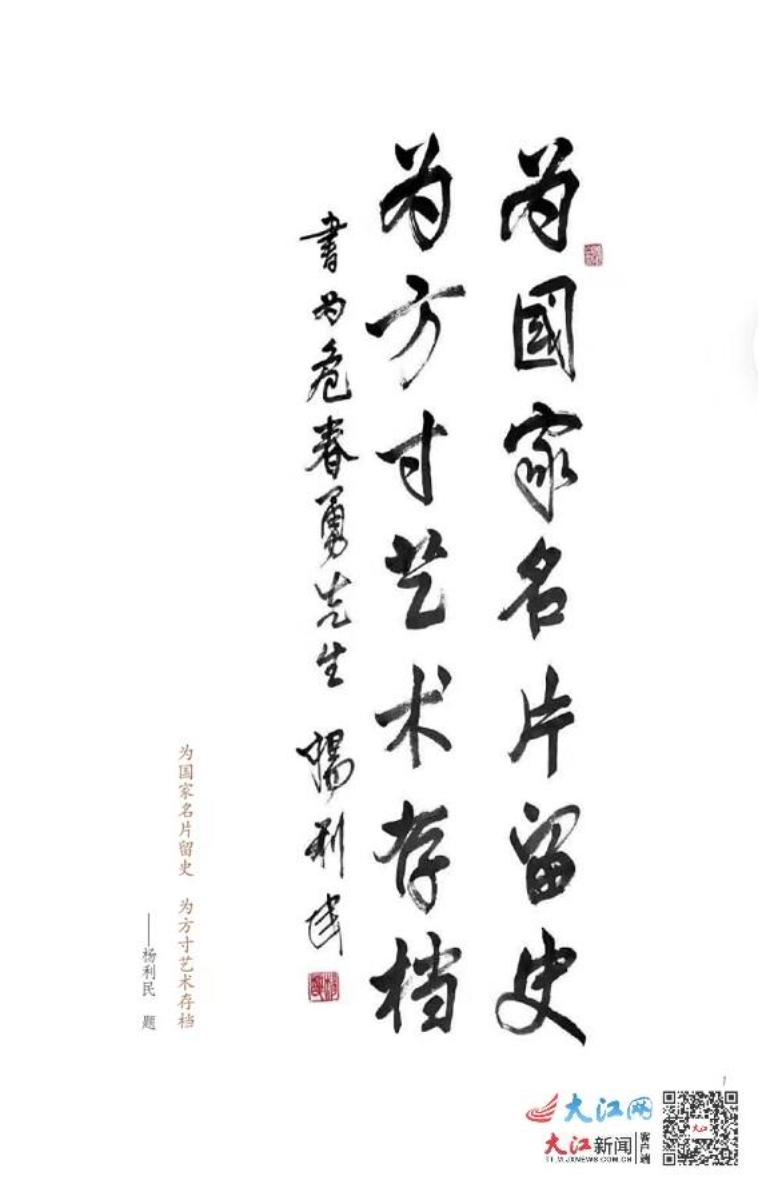 为國家名片留史
为方寸艺术存档
書为危春勇先生 楊利民
为国家名片留史 为方寸艺术存档
——杨利民 题
1
大江网
大江新闻 客户端
大江